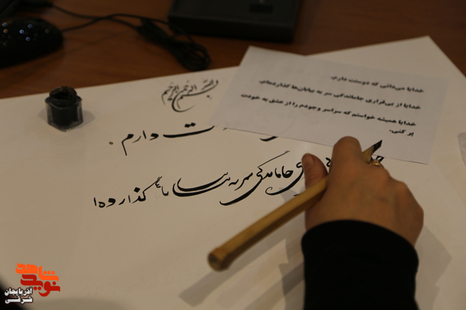 بسم الله الرحمن الرحیم
خدایا می‌دانی که دوستت دارم.
خدایا از بی‌قراری جاماندگی سر به بیابان‌ها گذارده‌ام
خدایا همیشه خواستم که سراسر وجودم را از عشق به خودت
پر کنی.
ت دارم.
ی جاماندگی سر به بیابانها گذارده‌ا
نوید شاهد
آذربایجان
شرقی